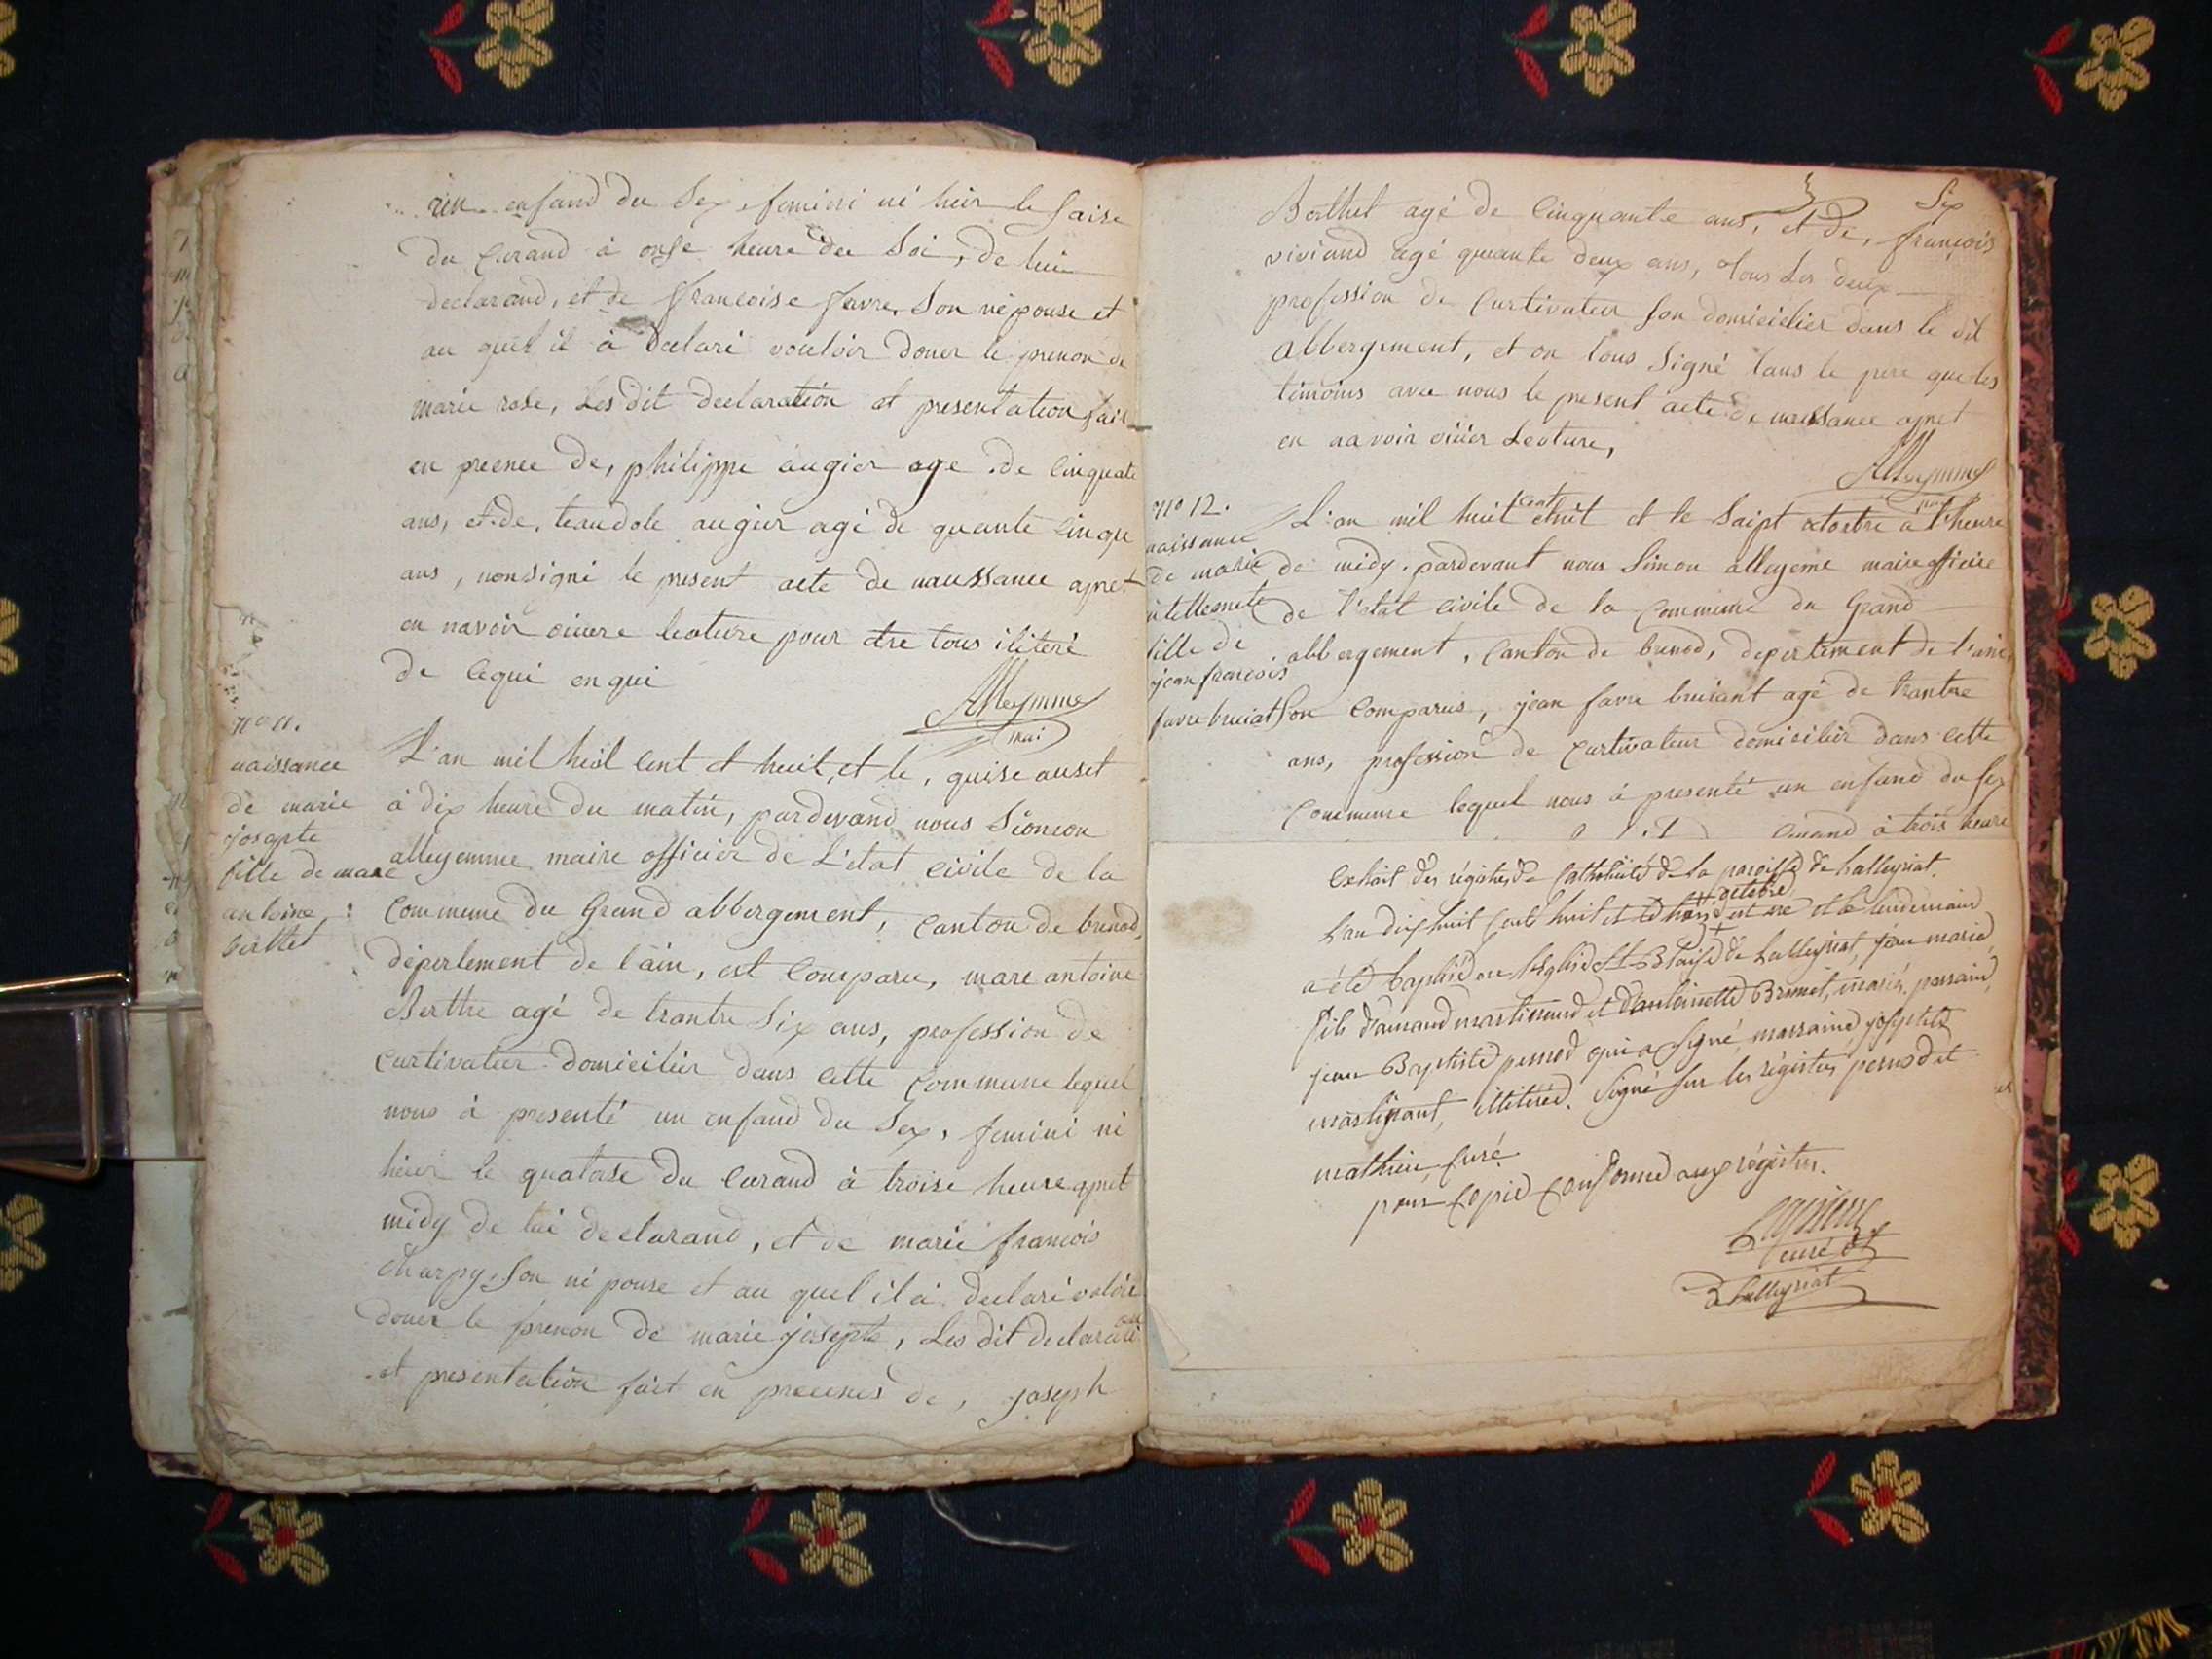 un enfand du Sex, femini ni hier le saise
du Curand à onse heure du Soi, de lui
declarand, et de francoise favre, Son népouse et
au quel il à declaré vouloir doner le prenon de
marie rose, Les dit declaration et presentation fait
en precnee de, philippe augier age de Cinquate
ans, et de, augier agé de quante Cinqu
ans, nonsigné le present acte de naissance apret
en navoir ouiere leature pour etre tous iliteré
de cequi enqui
Alleymme
mai
n° 11.
naissance
de marie
josepte
fille de marc
antoine
bertet
L'an mil huit cent et huit, et le, quise auset
à dix heure du matin, pardevand nous Simon
alleyemme maire officier de L'etat civile de la
Commune du Grand abbergement, Canton de brenod,
depertement de l'ain, est Comparu, marc antoine
Berthe agé de trantre Six ans, profession de
Curtivateur domicilier dans cette Commune lequel
nous à presenté un enfand du Sex, femini ni
hier le quatorse du Curand à troise heure apret
midy de lui declarand, et de marie francois
Charpy, Son népouse et au quel il à declaré voloir
doner le prenon de marie josepte, Les dit declaration
et presentation fait en precenes de, joseph
Six
Berthet agé de Cinquante ans, et de, francois
viviand agé quante deux ans, tous Les deux
profession de Curtivateur Son domicielier dans le dit
abbergement, et on tous Signé tans le pere que les
temoins avec nous le present acte de naissance apret
en navoir ouier Leature,
Alleymme
mai
n° 12.
naissance
de marie
fille de
jean francois
favre bruiat
L'an mil huit Cent et huit et le Saipt octobre à l'heure
de midy, pardevant nous Simon alleyeme maire officier
de l'etat civile de la Commune du Grand
abbergement, Canton de brenod, depertement de l'ain,
Son Comparus, jean favre bruiant agé de trantre
ans, profession de Curtivateur domicilier dans cette
Commune lequel nous à presenté un enfand du Sex
Curand à trois heure
Extrait des régistres de Catholicité de la paroisse de Lalleyriat.
L'an dix huit Cent huit et le octobre est né et le lendemain
a été baptisé en l'église St Blaise de Lalleyriat, jean marie,
fils d'amand martinand et d'antoinette Brunet, mariés. parrain,
jean Baptiste pernod qui a signé, marraine, josephte
martinant, illitérée. Signé sur les régistres pernod et
mathieu, curé
pour copie conforme aux régistres.
curé de
Lalleyriat